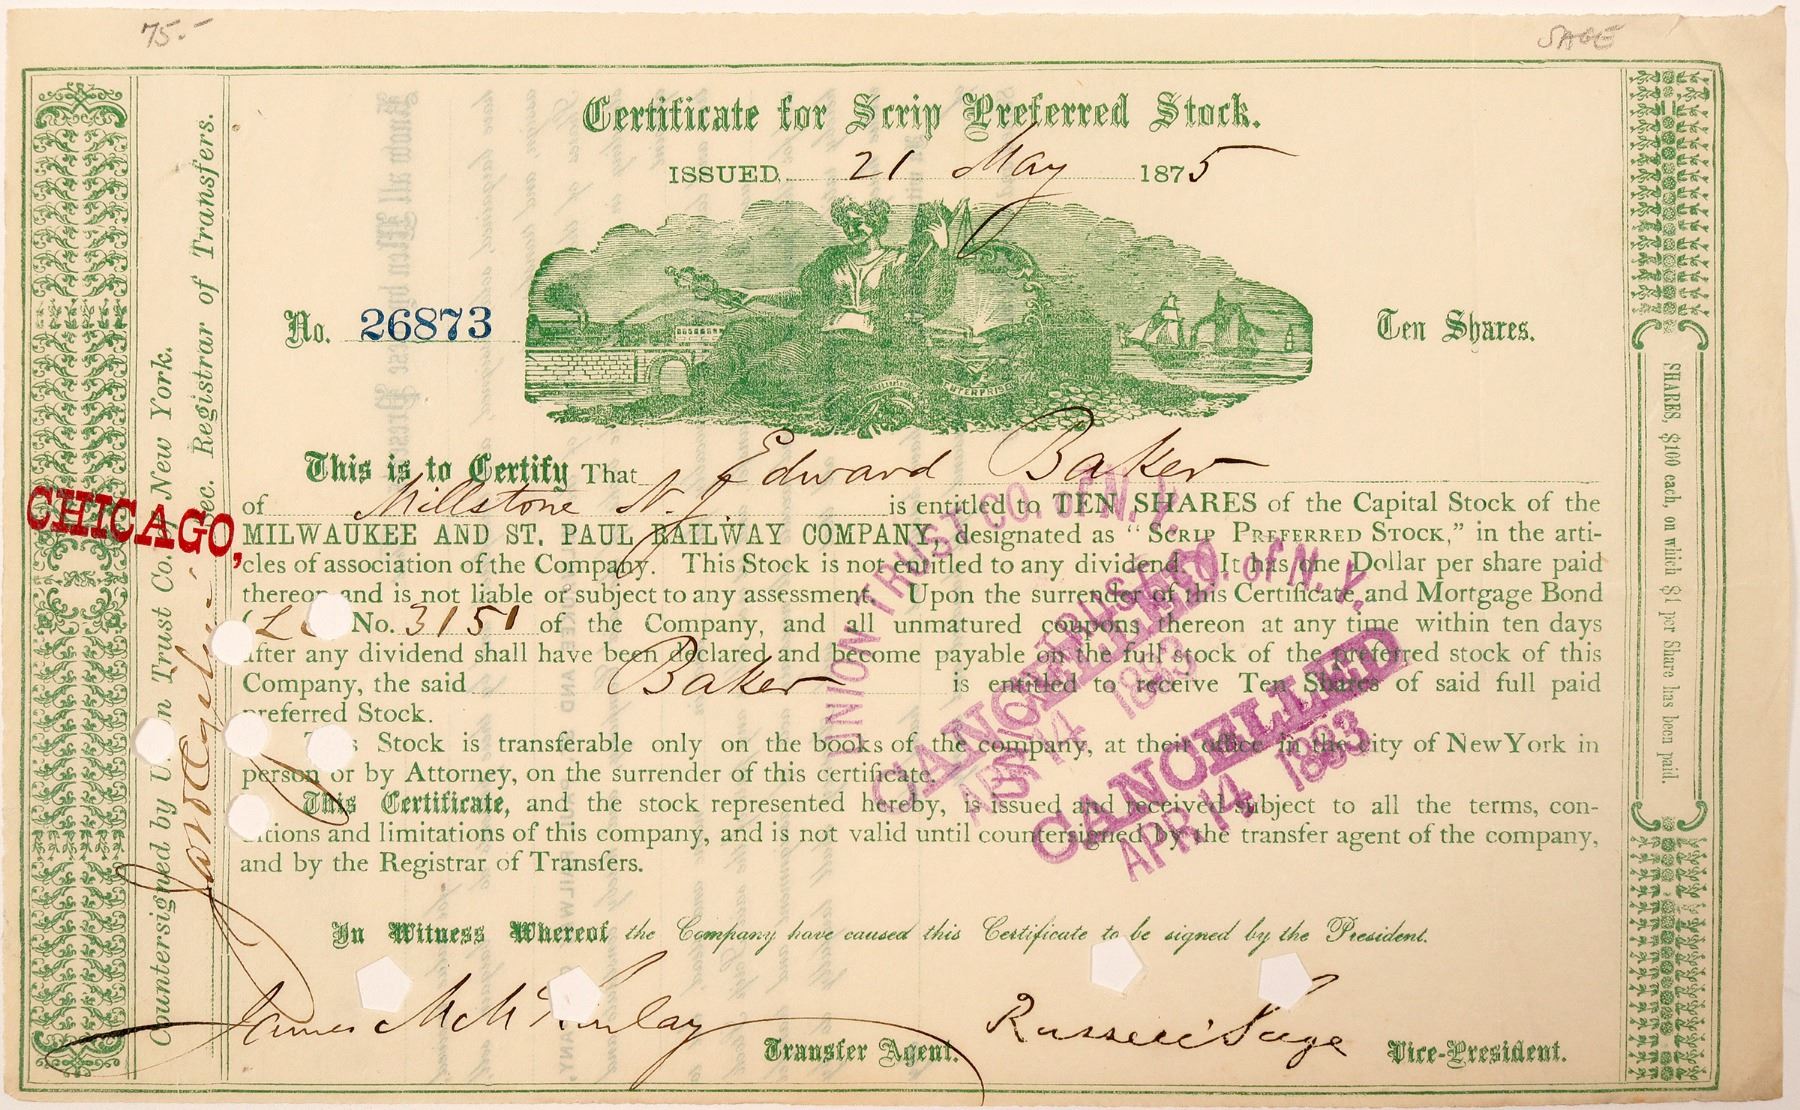 75.-
SAGE
Certificate for Scrip Preferred Stock.
ISSUED 21 May 1875
No. 26873
Ten Shares.
ENTERPRISE
This is to Certify That Edward Baker
of Millstone N. J. is entitled to TEN SHARES of the Capital Stock of the
CHICAGO, MILWAUKEE AND ST. PAUL RAILWAY COMPANY, designated as "SCRIP PREFERRED STOCK," in the arti-
cles of association of the Company. This Stock is not entitled to any dividend. It has one Dollar per share paid
thereon and is not liable or subject to any assessment. Upon the surrender of this Certificate and Mortgage Bond
No. 3151 of the Company, and all unmatured coupons thereon at any time within ten days
after any dividend shall have been declared and become payable on the full stock of the preferred stock of this
Company, the said Baker is entitled to receive Ten Shares of said full paid
preferred Stock.
This Stock is transferable only on the books of the company, at their office in the city of New York in
person or by Attorney, on the surrender of this certificate.
This Certificate, and the stock represented hereby, is issued and received subject to all the terms, con-
ditions and limitations of this company, and is not valid until countersigned by the transfer agent of the company,
and by the Registrar of Transfers.
In Witness Whereof the Company have caused this Certificate to be signed by the President.
James M McKinlay
Transfer Agent.
Russell Sage
Vice-President.
Countersigned by Union Trust Co. New York.
Sec. Registrar of Transfers.
SHARES, $100 each, on which $1 per Share has been paid.
UNION TRUST CO. of N. Y.
CANCELLED
APR 14 1883
UNION TRUST CO. of N. Y.
CANCELLED
APR 14 1883